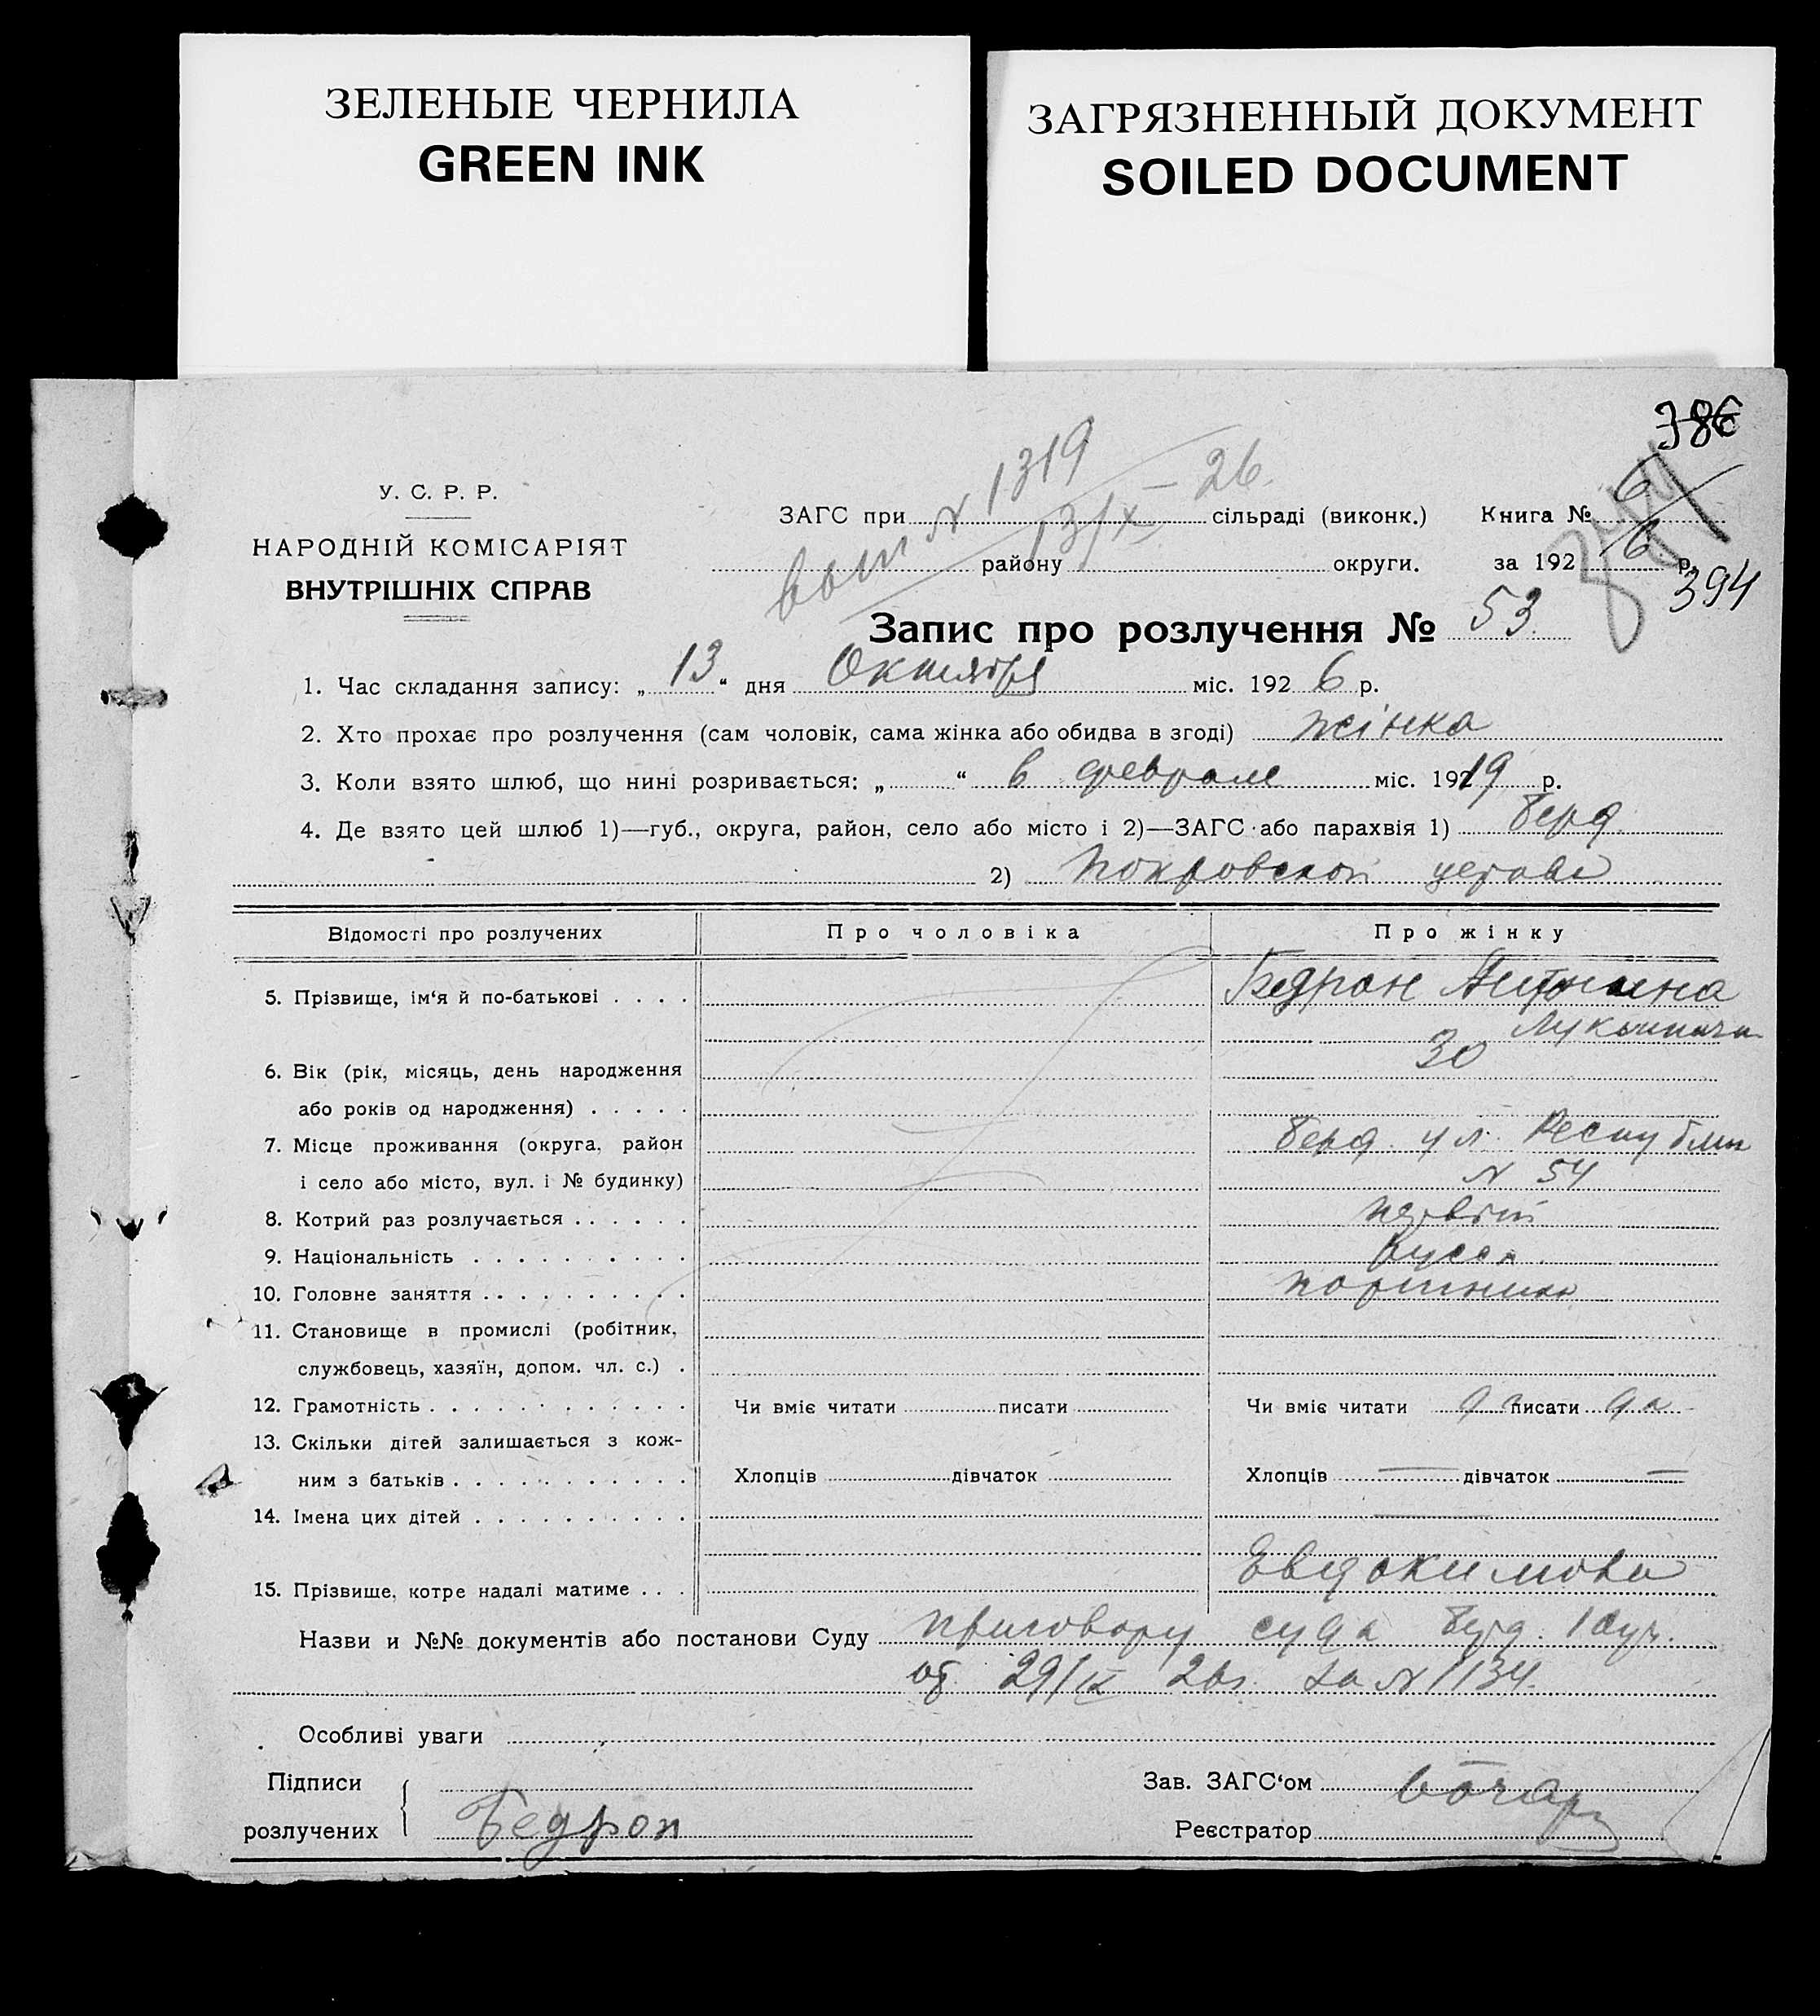 ЗЕЛЕНЫЕ ЧЕРНИЛА
GREEN INK
ЗАГРЯЗНЕННЫЙ ДОКУМЕНТ
SOILED DOCUMENT
386
У. С. Р. Р.
НАРОДНІЙ КОМІСАРІЯТ
ВНУТРІШНІХ СПРАВ
№ 1319
13/X - 26.
ЗАГС при сільраді (виконк.) Книга № 6
району округи. за 192 6 р.
394
Запис про розлучення № 53
1. Час складання запису: „ 13 “ дня Октября міс. 192 6 р.
2. Хто прохає про розлучення (сам чоловік, сама жінка або обидва в згоді) жінка
3. Коли взято шлюб, що нині розривається: „ “ в феврале міс. 19219 р.
4. Де взято цей шлюб 1)—губ., округа, район, село або місто і 2)—ЗАГС або парахвія 1) Берд.
2) Покровской церкви
Відомості про розлучених Про чоловіка Про жінку
5. Прізвище, ім‘я й по-батькові . . . . Бедрон Антонина
6. Вік (рік, місяць, день народження 30
або років од народження) . . . . .
7. Місце проживання (округа, район Берд. ул. Республик
і село або місто, вул. і № будинку) № 54
8. Котрий раз розлучається . . . . . . первый
9. Національність . . . . . . . . . . русск.
10. Головне заняття . . . . . . . . . . портниха
11. Становище в промислі (робітник,
службовець, хазяїн, допом. чл. с.) .
12. Грамотність . . . . . . . . . . . . Чи вміє читати писати Чи вміє читати да писати да
13. Скільки дітей залишається з кож-
ним з батьків . . . . . . . . . . . Хлопців дівчаток Хлопців — дівчаток —
14. Імена цих дітей . . . . . . . . . . —
15. Прізвище, котре надалі матиме . . . Евдокимова
Назви и №№ документів або постанови Суду приговору суда
от 29/IX 26г. за № 1134.
Особливі уваги
Підписи Зав. ЗАГС‘ом
розлучених Бедрон Реєстратор